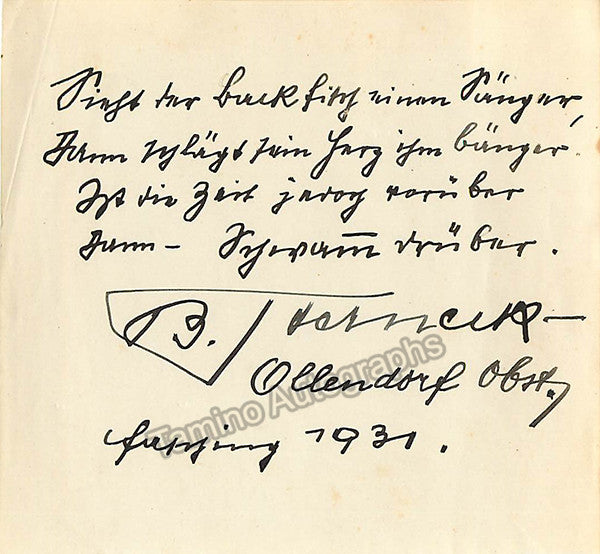 Sieht der Backfisch einen Sänger,
Dann schlägt sein Herz ihm bänger.
Ist die Zeit jedoch vorüber
Dann – Schwam̅ drüber.
B.
Ollendorf Obst.
Fasching 1931.
Tamino Autographs